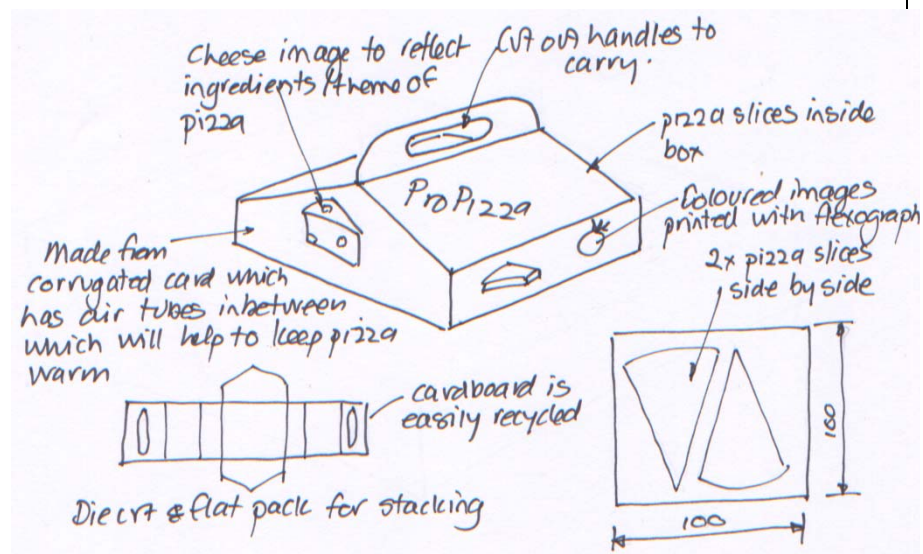 Cheese image to reflect
ingredients/theme of
pizza
Cut out handles to
carry.
pizza slices inside
box
ProPizza
Coloured images
printed with flexograph
Made from
corrugated card which
has air tubes inbetween
which will help to keep pizza
warm
2x pizza slices
side by side
cardboard is
easily recycled
Die cut & flat pack for stacking
100
100